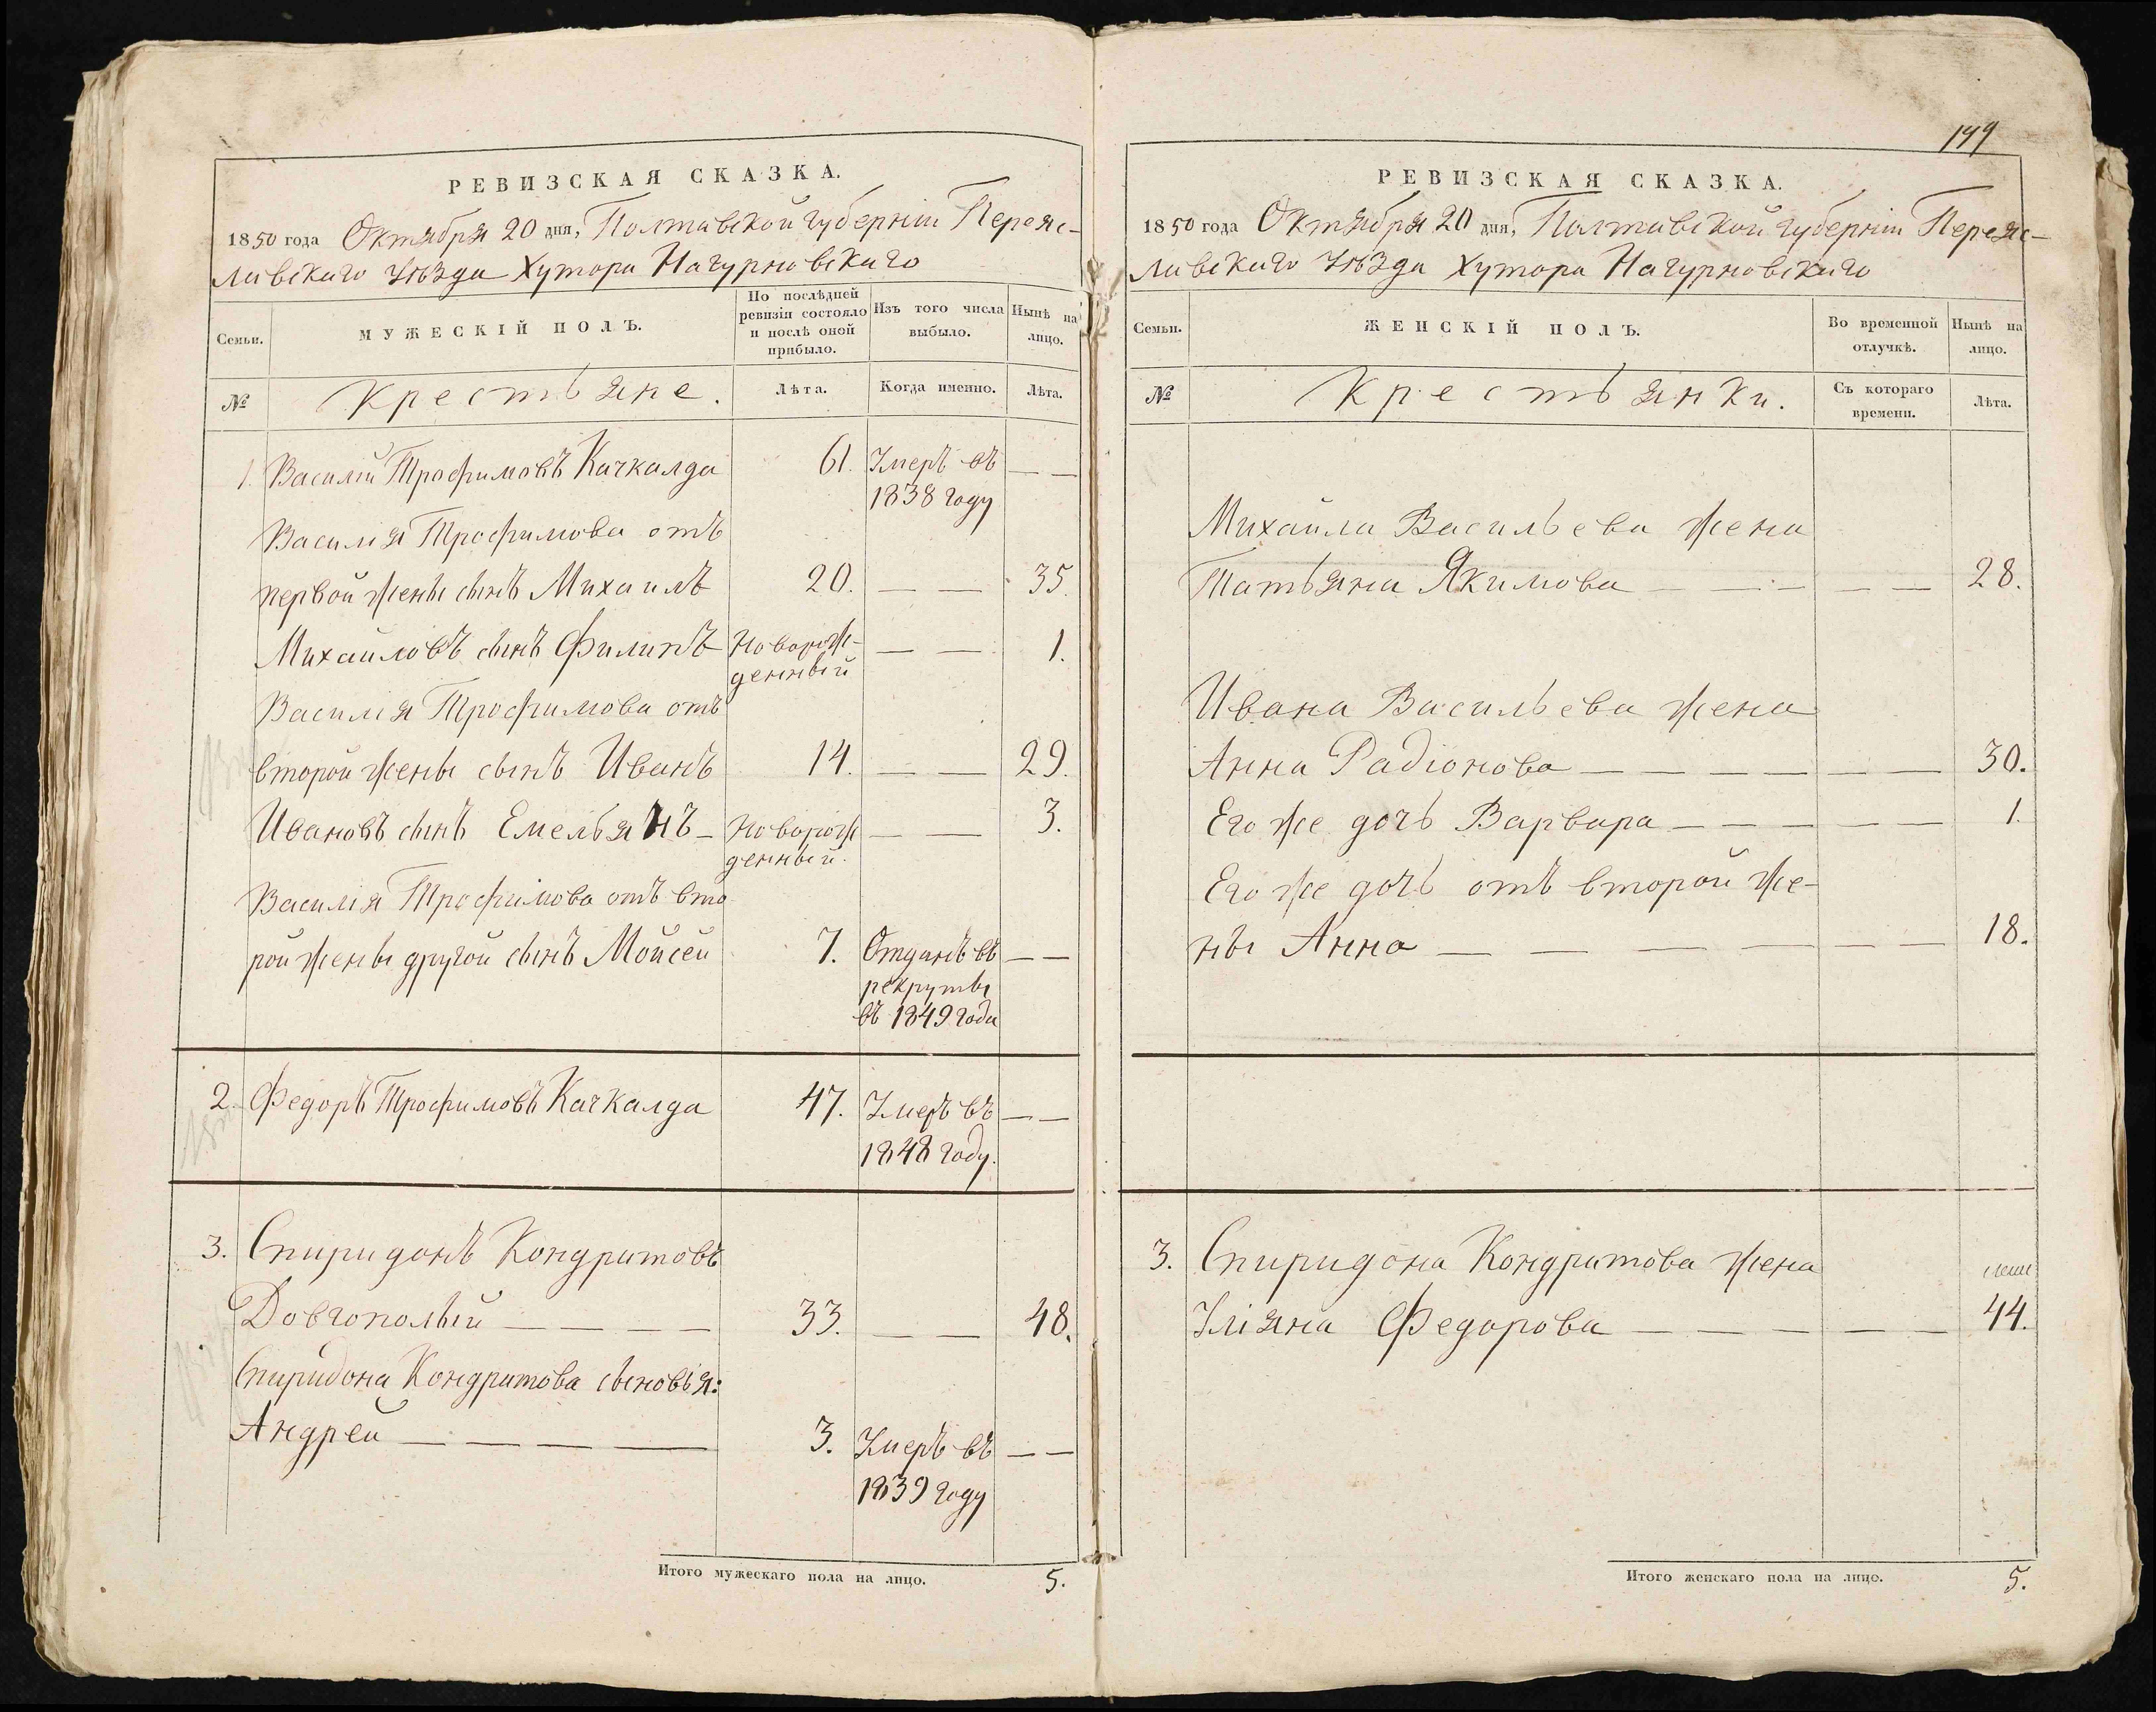 РЕВИЗСКАЯ СКАЗКА.
1850 года Октября 20 дня, Полтавской губерніи Переяс-
лавскаго Уѣзда Хутора
Семьи.
МУЖЕСКІЙ ПОЛЪ.
По послѣдней
ревизіи состояло
и послѣ оной
прибыло.
Изъ того числа
выбыло.
Нынѣ на
лицо.
№
Крестьяне.
Лѣта.
Когда именно.
Лѣта.
1. Василій Трофимовъ Качкалда 61. Умеръ въ — —
1838 году
Василія Трофимова отъ
первой жены сынъ Михаилъ 20. — — 35.
Михайловъ сынъ Филипъ Новорож- — — 1.
денный
Василія Трофимова отъ
второй жены сынъ Иванъ 14. — — 29.
Ивановъ сынъ Емельянъ — Новорож — — 3.
денный.
Василія Трофимова отъ вто
рой жены другой сынъ Мойсей 7. Отданъ въ — —
рекруты
въ 1849 года
2. Федоръ Трофимовъ Качкалда 47. Умеръ въ — —
1848 году.
3. Спиридонъ Кондратовъ
Довгополый — — — — 33. — — 48.
Спиридона Кондратова сыновья:
Андрей — — — — 3. Умеръ въ — —
1839 году
Итого мужескаго пола на лицо. 5.
РЕВИЗСКАЯ СКАЗКА.
1850 года Октября 20 дня, Полтавской губерніи Переяс-
лавскаго Уѣзда Хутора
Семьи.
ЖЕНСКІЙ ПОЛЪ.
Во временной
отлучкѣ.
Нынѣ на
лицо.
№
Крестьянки.
Съ котораго
времени.
Лѣта.
Михайла Васильева жена
Татьяна Якимова — — — — — 28.
Ивана Васильева жена
Анна Радіонова — — — — — — 30.
Его же дочь Варвара — — — — — 1.
Его же дочь отъ второй же-
ны Анна — — — — — — 18.
3. Спиридона Кондратова жена
Уліяна Федорова — — — — — — 44.
Итого женскаго пола на лицо. 5.